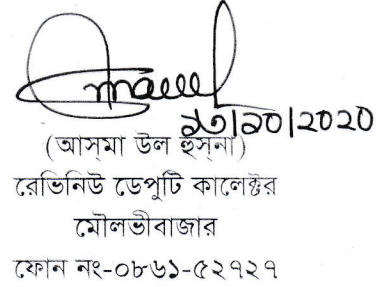 ১৩/১০/২০২০
(আস্‌মা উল হুস্‌না)
রেভিনিউ ডেপুটি কালেক্টর
মৌলভীবাজার
ফোন নং-০৮৬১-৫২৭২৭